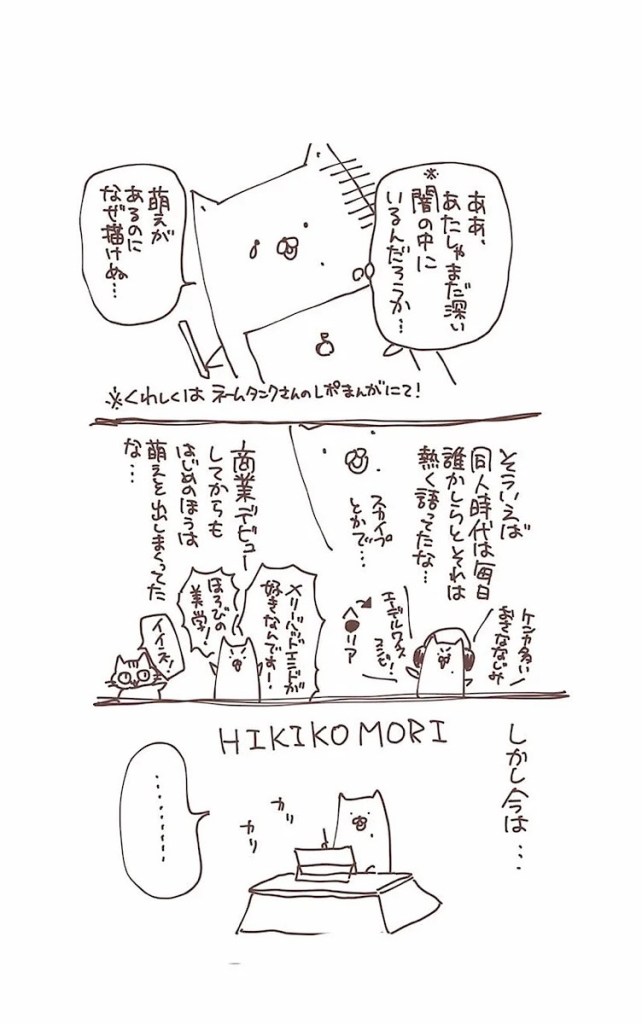 ああ、
あたしゃまだ深い
※闇の中に
いるんだろうか…
萌えが
あるのに
なぜ描けぬ…
※くわしくは ネームタンクさんのレポまんがにて!
そういえば
同人時代は毎日
誰かしらとそれは
熱く語ってたな…
スカイプ
とかで…
ケンカ多い
おさななじみ
エーデルワイス
ヘ●リア
商業デビュー
してからも
はじめのほうは
萌えを出しまくってた
な…
メリーバッドエンドが
好きなんです!
ほろびの
美学!
イイネ!
しかし今は…
HIKIKOMORI
カリ
カリ
………